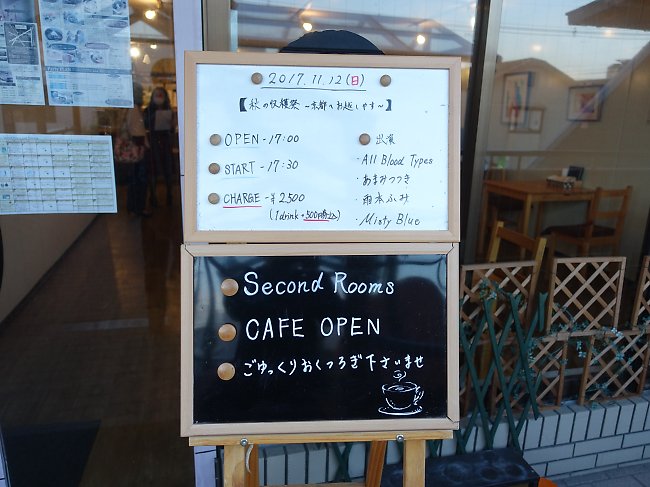 2017.11.12(日)
【秋の収穫祭 ~京都へお越しやす~】
OPEN - 17:00
START - 17:30
CHARGE - ¥2,500
(1drink + 500円込)
出演
・All Blood Types
・あまみつつき
・雨本ふみ
・Misty Blue
Second Rooms
CAFE OPEN
ごゆっくりおくつろぎ下さいませ